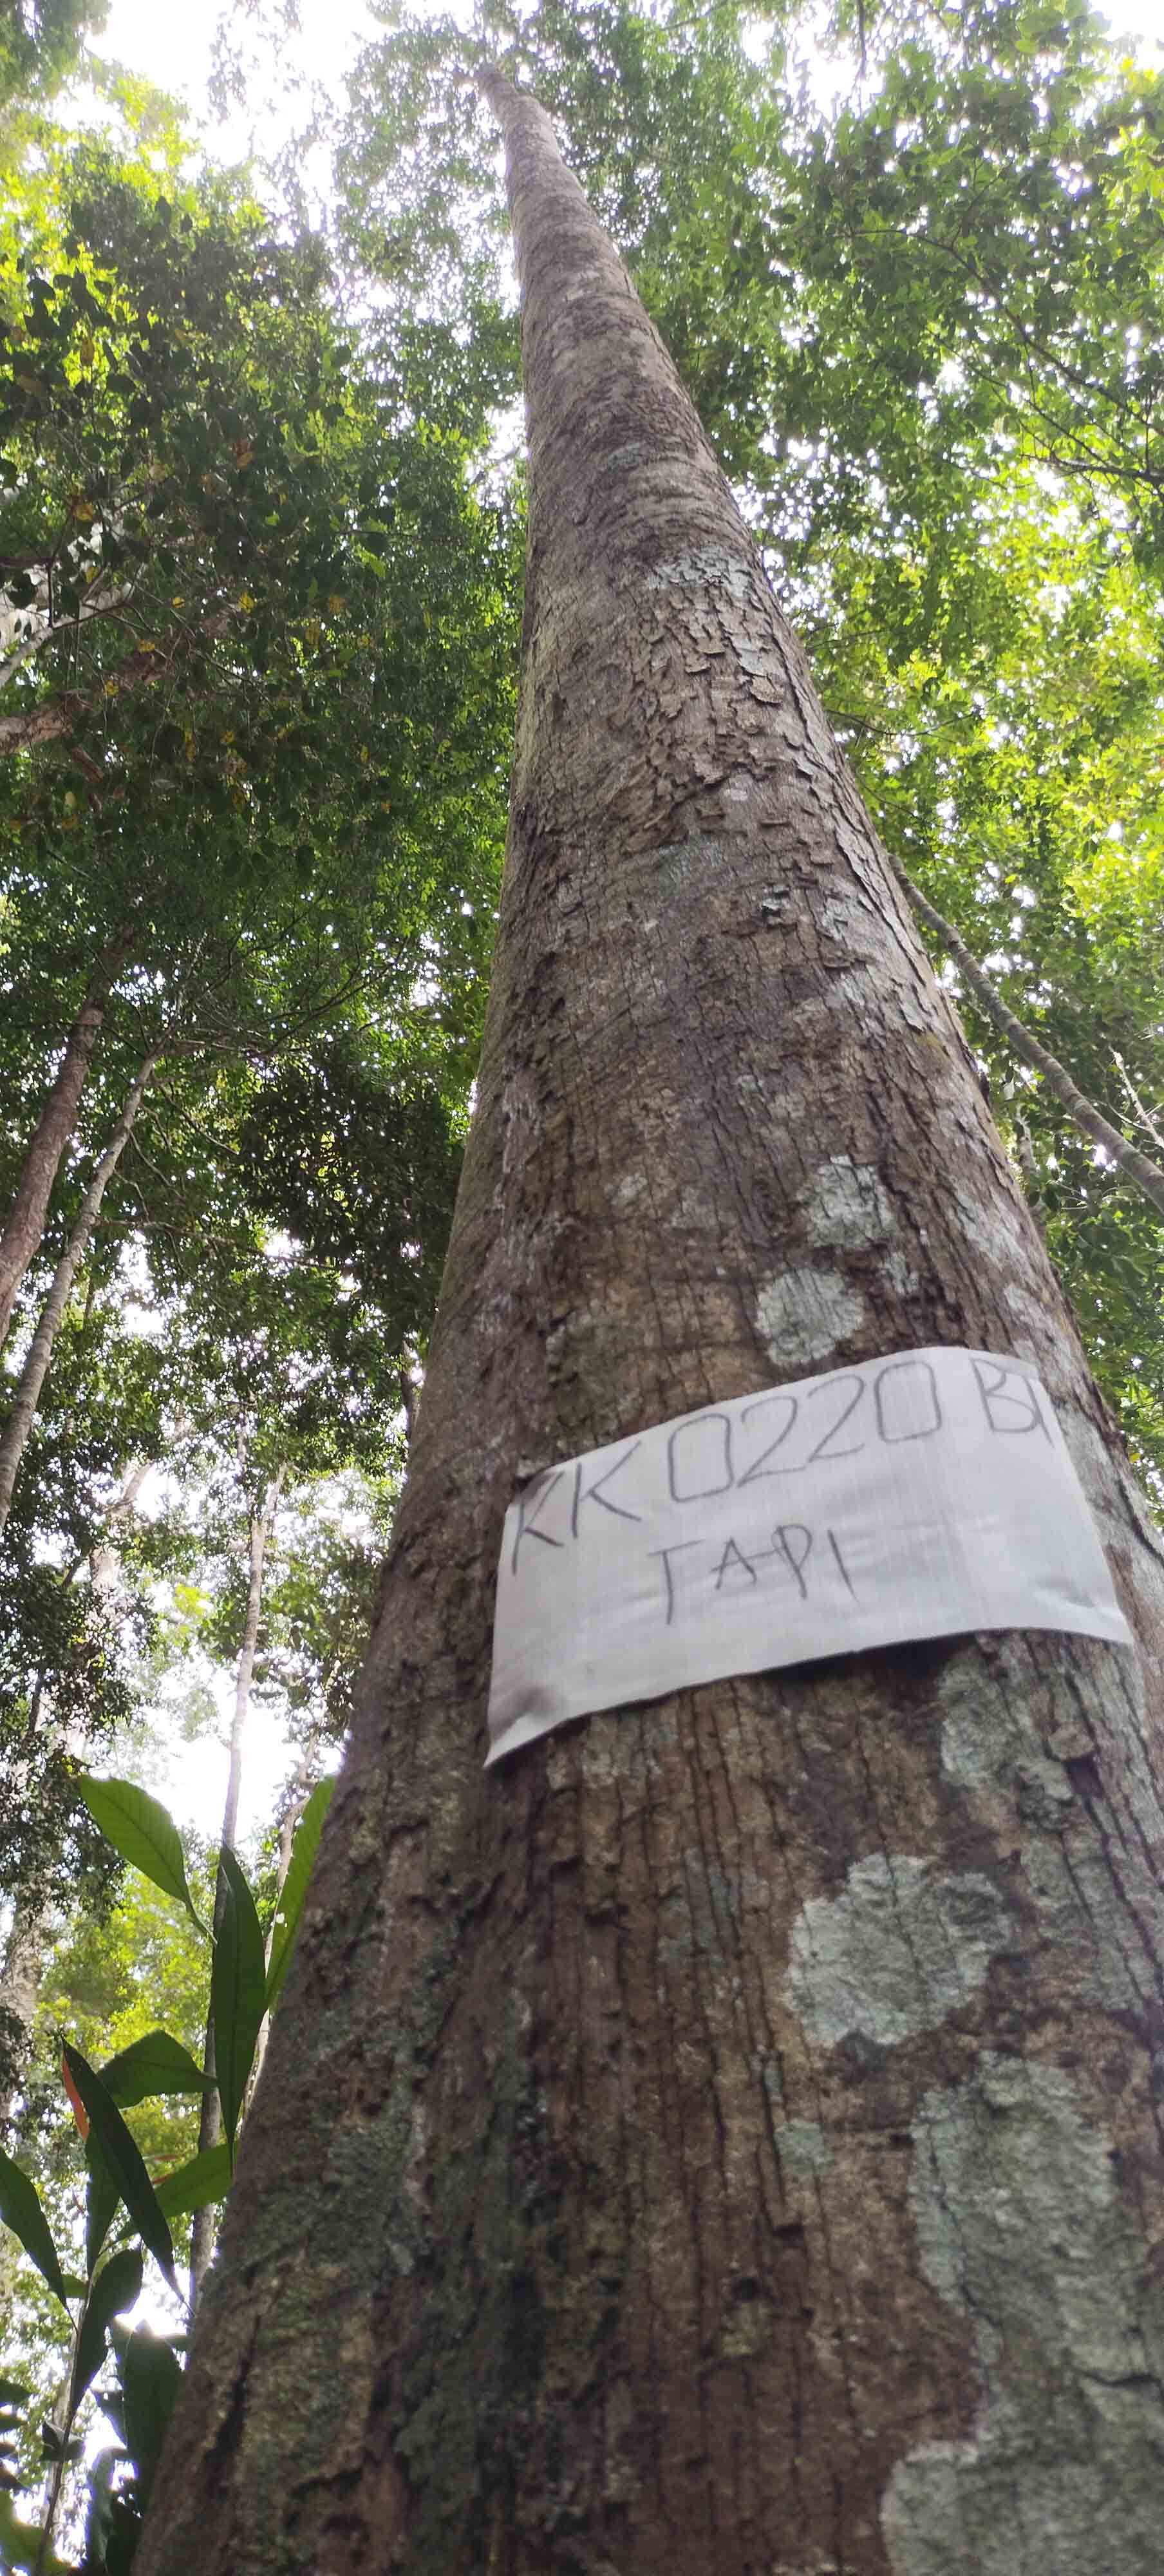 KK0220 BI
TAPI